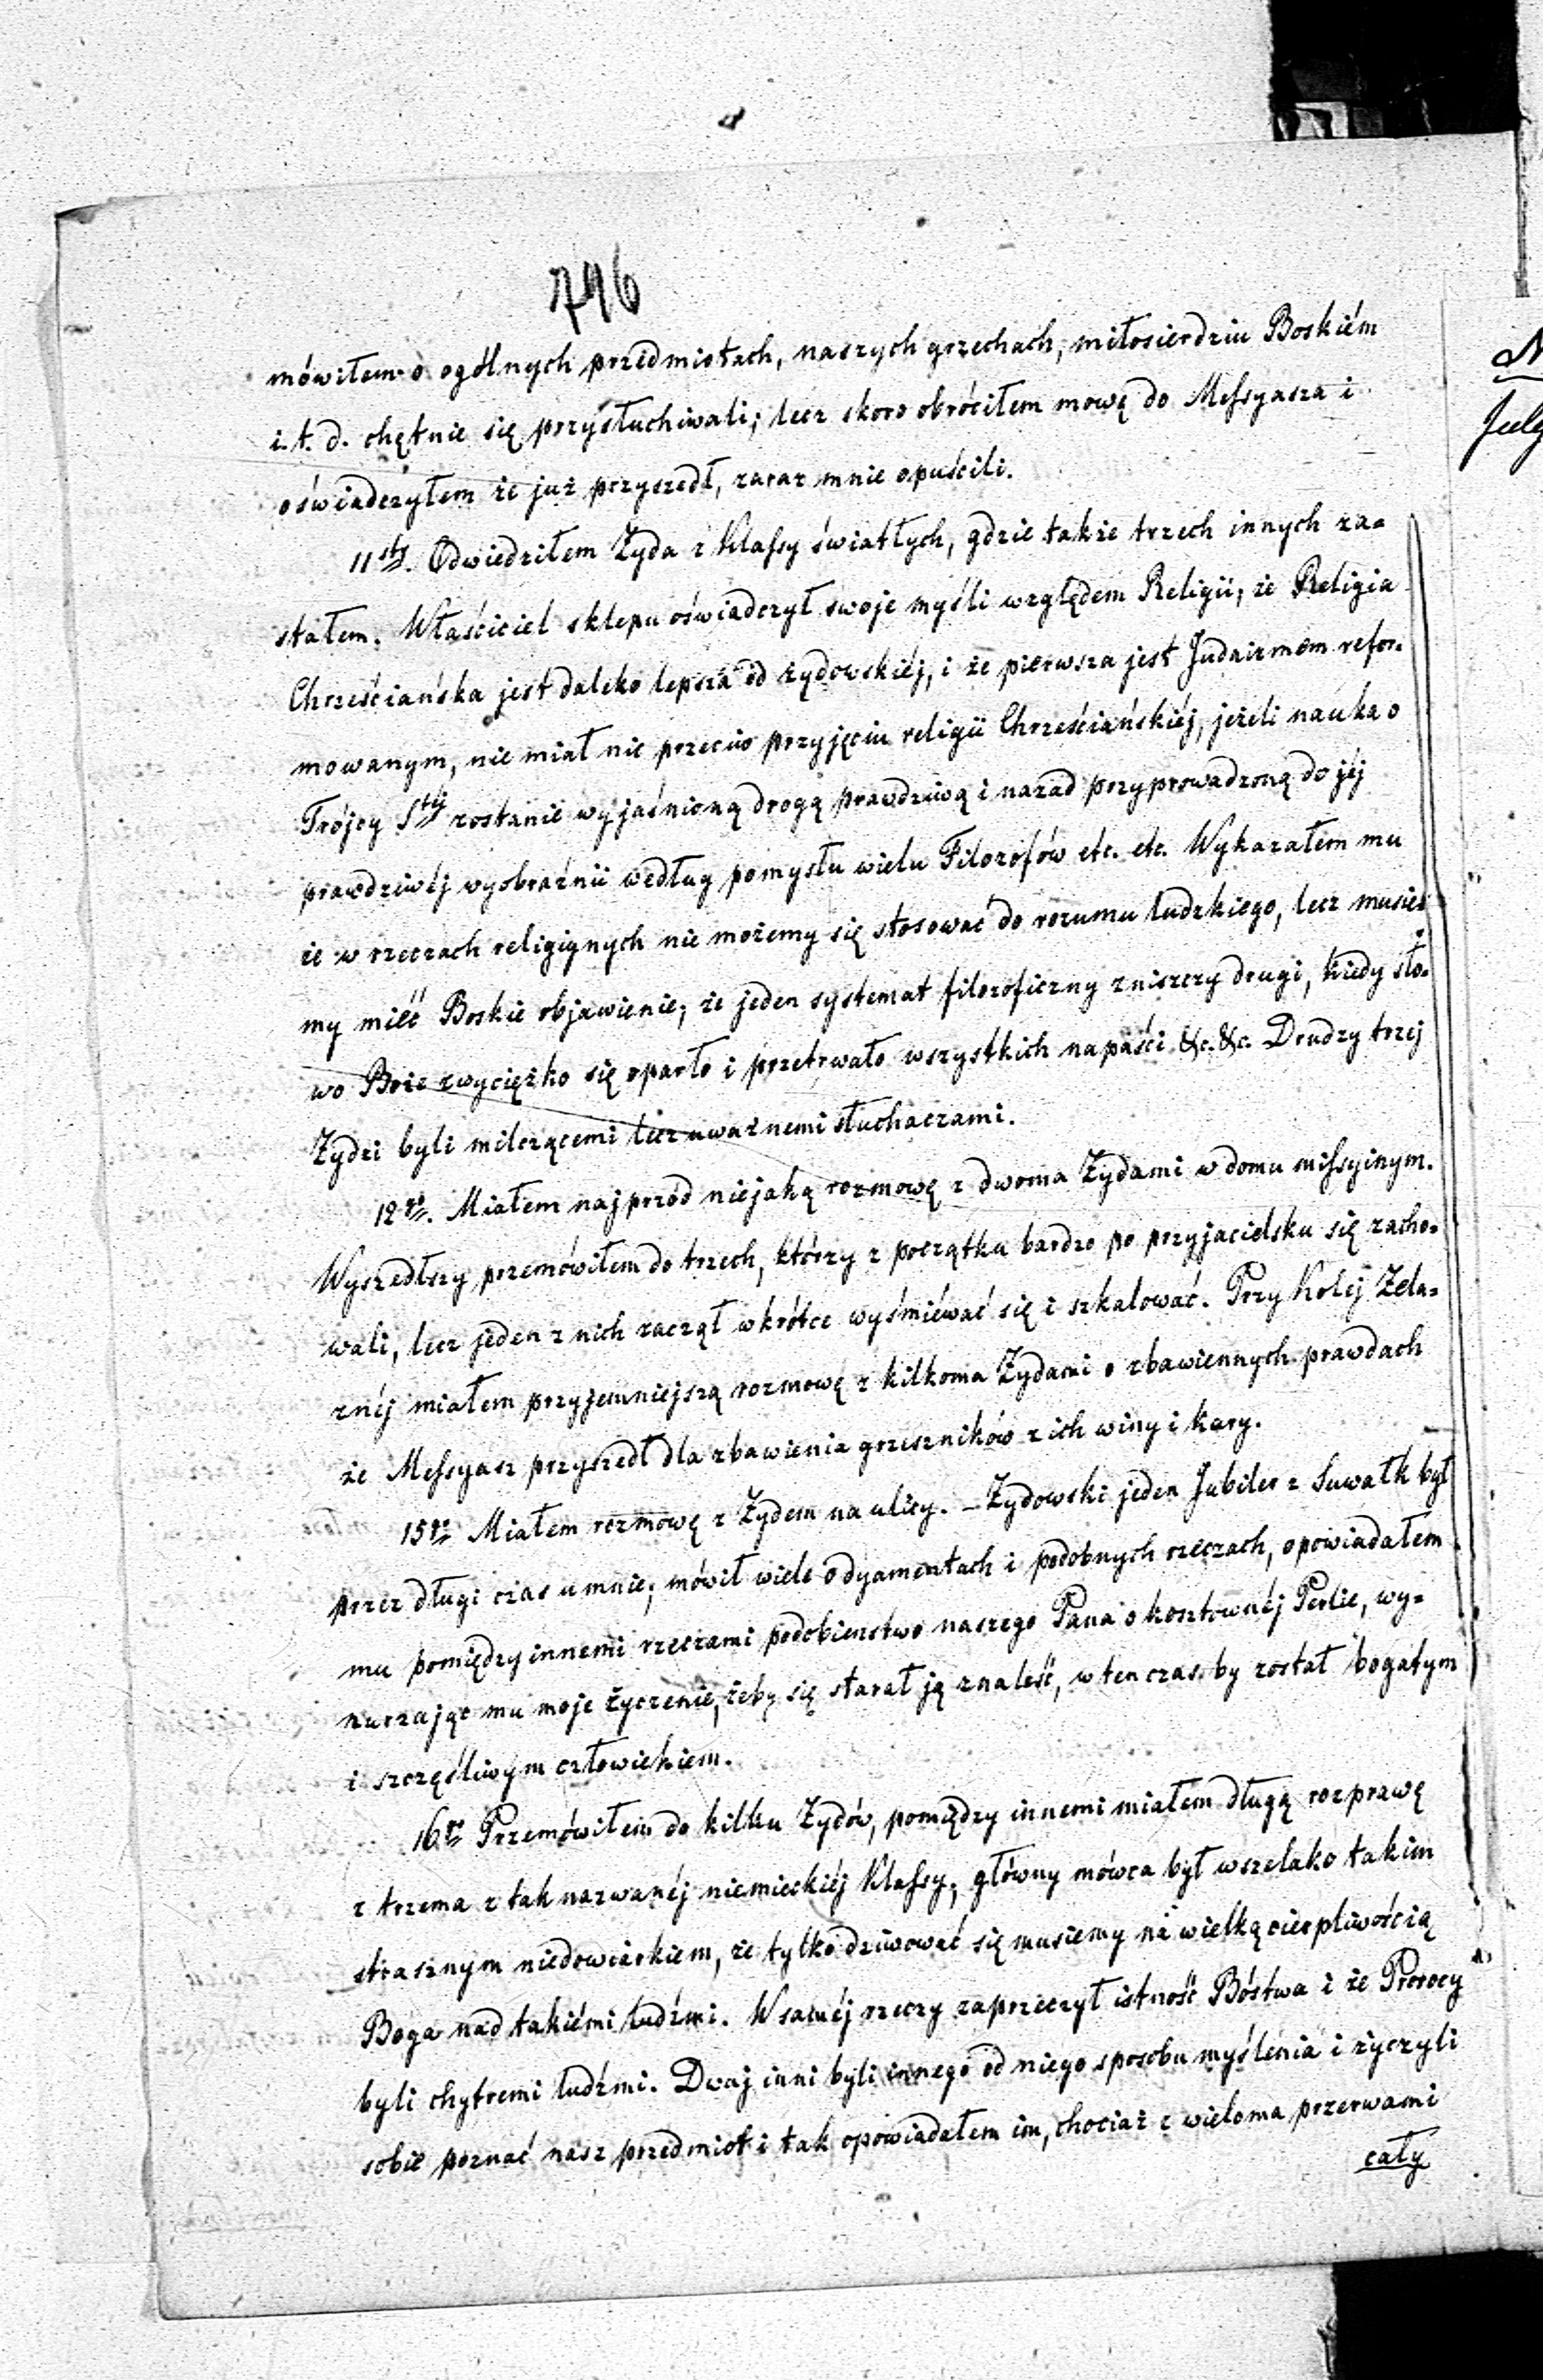 746
mówiłem o ogólnych przedmiotach, naszych grzechach, miłosierdziu Boskiém
i. t. d. chętnie się przysłuchiwali; lecz skoro obróciłem mowę do Messyasza i
oświadczyłem że już przyszedł, zaraz mnie opuścili.
11sty. Odwiedziłem Żyda z klassy światłych, gdzie także trzech innych za-
stałem. Właściciel sklepu oświadczył swoje myśli względem Religii, że Religia
Chrześciańska jest daleko lepsza od żydowskiéj, i że pierwsza jest Judaizmem refor-
mowanym, nie miał nic przeciw przyjęciu religii Chrześciańskiéj, jeżeli nauka o
Trójcy Stéj zostanie wyjaśnioną drogą prawdziwą i nazad przyprowadzoną do jéj
prawdziwéj wyobraźnii według pomysłu wielu Filozofów etc. etc. Wykazałem mu
że w rzeczach religijnych nie możemy się stosować do rozumu ludzkiego, lecz musie-
my mieć Boskie objawienie; że jeden systemat filozoficzny zniszczy drugi, kiedy sło-
wo Boże zwycięzko się oparło i przetrwało wszystkich napaści &c. &c. Drudzy trzej
Żydzi byli milczącemi lecz uważnemi słuchaczami.
12go. Miałem najprzód niejaką rozmowę z dwoma Żydami w domu missyinym.
Wyszedłszy przemówiłem do trzech, którzy z początku bardzo po przyjacielsku się zacho-
wali, lecz jeden z nich zaczął wkrótce wyśmiéwać się i szkalować. Przy Kolej Żela-
znéj miałem przyjemniejszą rozmowę z kilkoma Żydami o zbawiennych prawdach
że Messyasz przyszedł dla zbawienia grzeszników z ich winy i kary.
15go Miałem rozmowę z Żydem na ulicy. - Żydowski jeden Jubiler z Suwałk był
przez długi czas u mnie; mówił wiele o dyamentach i podobnych rzeczach, opowiadałem
mu pomiędzy innemi rzeczami podobienstwo naszego Pana o kosztownéj Perlie, wy-
nurzając mu moje życzenie, żeby się starał ją znaleść, w ten czas by został bogatym
i szczęśliwym człowiekiem.
16go Przemówiłem do kilku Żydów, pomiędzy innemi miałem długą rozprawę
z trzema z tak nazwanéj niemieckiéj klassy; główny mówca był wszelako takim
strasznym niedowiarkiem, że tylko dziwować się musiemy na wielką cierpliwością
Boga nad takiémi ludźmi. W saméj rzeczy zaprzeczył istność Bóstwa i że Prorocy
byli chytremi ludźmi. Dwaj inni byli innego od niego sposobu myślenia i życzyli
sobie poznać nasz przedmiot i tak opowiadałem im, chociaż z wieloma przerwami
cały
July